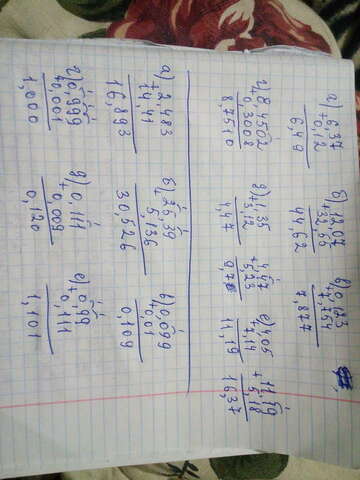 а) 6,37 б) 12,07 в) 0,123
+ 0,12 + 32,55 + 7,754
6,49 44,62 7,877
г) 8,4502 д) 1,35 4,47 е) 4,05 11,19
+ 0,3008 + 3,12 + 5,23 + 7,14 + 5,18
8,7510 4,47 11,19 16,37
а) 2,483 б) 25,39 в) 0,099
+ 14,41 + 5,136 + 0,01
16,893 30,526 0,109
г) 0,999 д) 0,111 е) 0,99
+ 0,001 + 0,009 + 0,111
1,000 0,120 1,101